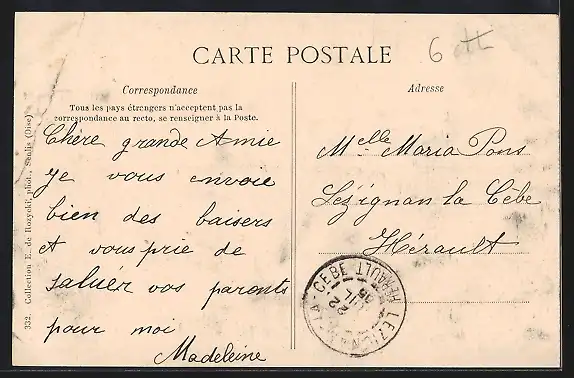 CARTE POSTALE
6
Correspondance
Tous les pays étrangers n'acceptent pas la
correspondance au recto, se renseigner à la Poste.
Chère grande Amie
Je vous envoie
bien des baisers
et vous prie de
saluer vos parents
pour moi
Madeleine
Adresse
Melle Maria Pons
Lézignan la Cèbe
Hérault
LEZIGNAN-LA-CEBE HERAULT
22
332. Collection E. de Rozycki, phot., Senlis (Oise)